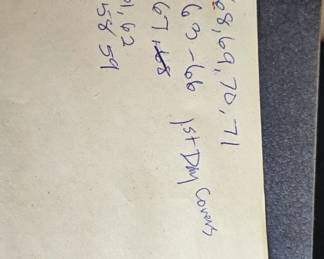 68,69,70,71
63-66 1st Day Covers
67,68
, 62
58 59